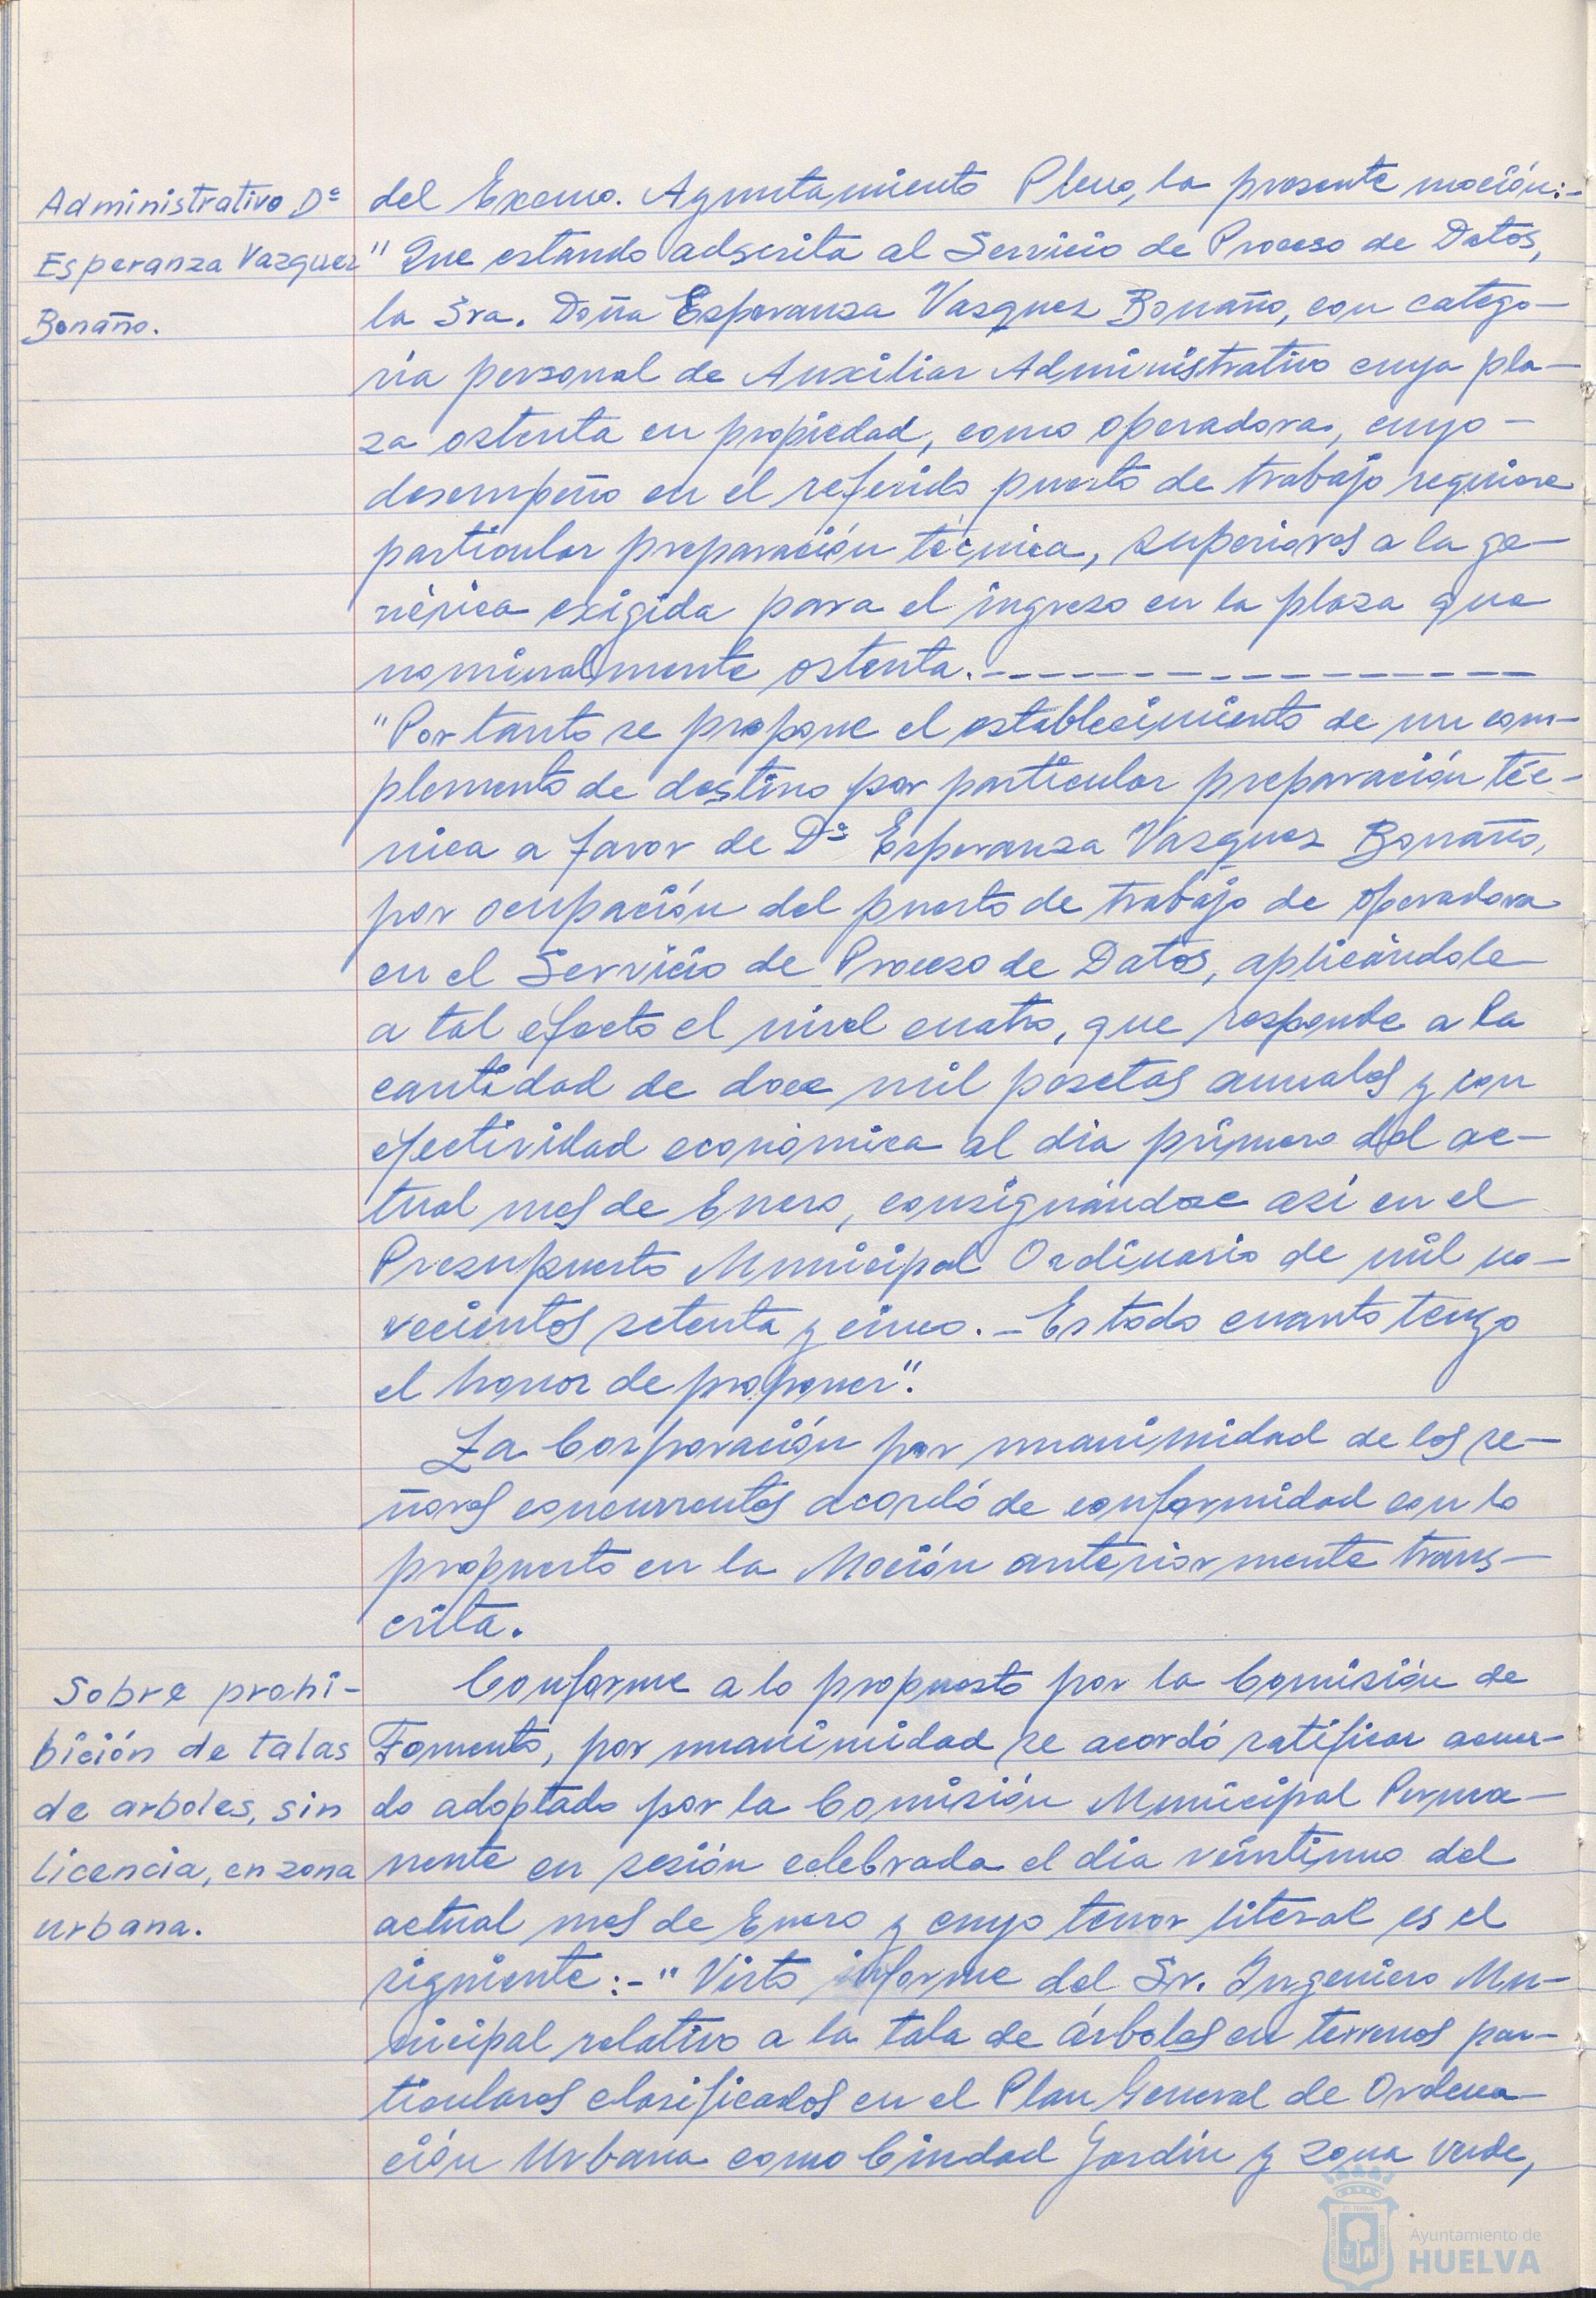 Administrativo Dª
Esperanza Vazquez
Bonaño.
del Excmo. Ayuntamiento Pleno, la presente moción:-
"Que estando adscrita al Servicio de Proceso de Datos,
la Sra. Doña Esperanza Vazquez Bonaño, con catego-
ria personal de Auxiliar Administrativo cuya pla-
za ostenta en propiedad, como operadora, cuyo-
desempeño en el referido puesto de trabajo requiere
particular preparación técnica, superiores a la ge-
nérica exigida para el ingreso en la plaza que
nominalmente ostenta.----------------
"Por tanto se propone el establecimiento de un com-
plemento de destino por particular preparación téc-
nica a favor de Dª Esperanza Vazquez Bonaño,
por ocupación del puesto de trabajo de operadora
en el Servicio de Proceso de Datos, aplicándole
a tal efecto el nivel cuatro, que responde a la
cantidad de doce mil pesetas anuales y con
efectividad económica al dia primero del ac-
tual mes de Enero, consignándose asi en el
Presupuesto Municipal Ordinario de mil no-
vecientos setenta y cinco.- Es todo cuanto tengo
el honor de proponer".
La Corporación por unanimidad de los se-
ñores concurrentes acordó de conformidad con lo
propuesto en la Moción anteriormente trans-
crita.
Sobre prohi-
bición de talas
de arboles, sin
licencia, en zona
urbana.
Conforme a lo propuesto por la Comisión de
Fomento, por unanimidad se acordó ratificar acuer-
do adoptado por la Comisión Municipal Perma-
nente en sesión celebrada el dia veintiuno del
actual mes de Enero y cuyo tenor literal es el
siguiente:-"Visto informe del Sr. Ingeniero Mu-
nicipal relativo a la tala de árboles en terrenos par-
ticulares clasificados en el Plan General de Ordena-
ción Urbana como Ciudad Jardín y zona verde,
Ayuntamiento de
HUELVA